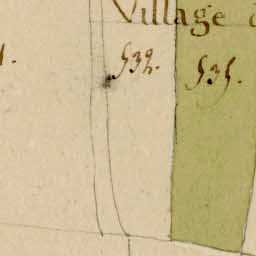 Village
532. 535.